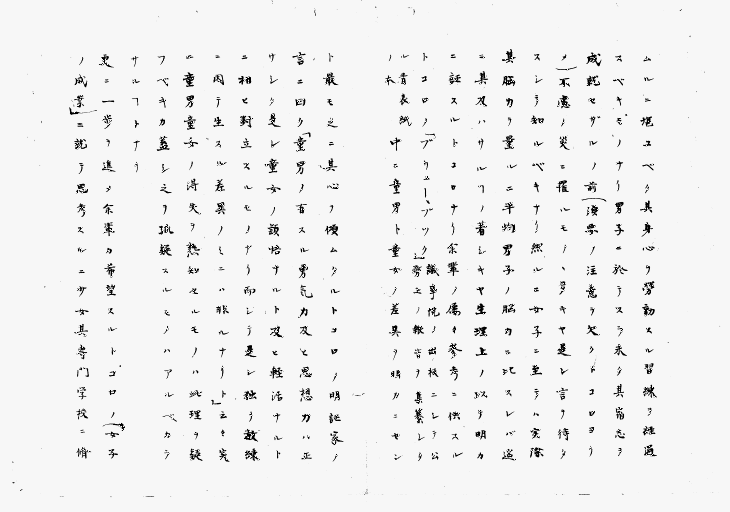 ムルニ堪ユベク其身心ヲ労動スル習練ヲ経過
スベキモノナリ男子ニ於テスラ未タ其宿志ヲ
成就セザルノ前(演察ノ注意ヲ欠クトコロヨリ
メ)不慮ノ災ニ罹ルモノ、多キヤ是レ言ヲ待タ
スシテ知ルベキナリ然ルニ女子ニ至テハ実際
其脳力ヲ量ルニ平均男子ノ脳力ニ比スレバ遥
ニ其及ハサルノ著シキヤ生理上ノ以テ明カ
ニ証スルトコロナリ余輩ノ偶々参考ニ供スル
トコロノ「ブリュー、ブック」議事院ノ出板ニシテ公
ル青表紙 齊上ノ報告ヲ其纂シタ
ノ本 中ニ童男ト童女ノ差異ヲ明カニセン
ト最モ之ニ其心ヲ傾ムクルトコロノ明証家ノ
言ニ曰ク「童男ノ有スル勇気力及ヒ思想力ハ正
サシク是レ童女ノ頴悟ナルト及ヒ軽活ナルト
ニ相ヒ対立スルモノナリ而シテ是レ独リ教練
ニ因テ生スル差異ノミニハ非ルナリト」云々実
ル童男童女ノ得失ヲ熟知セルモノハ此理ヲ疑
フベキカ蓋シ之ヲ狐疑スルモノハアルベカラ
サルフトナリ
更ニ一歩ヲ進メ余輩カ希望スルトコロノ「女子
ノ成業」ニ就テ思考スルニ少女其専門学校ニ脩